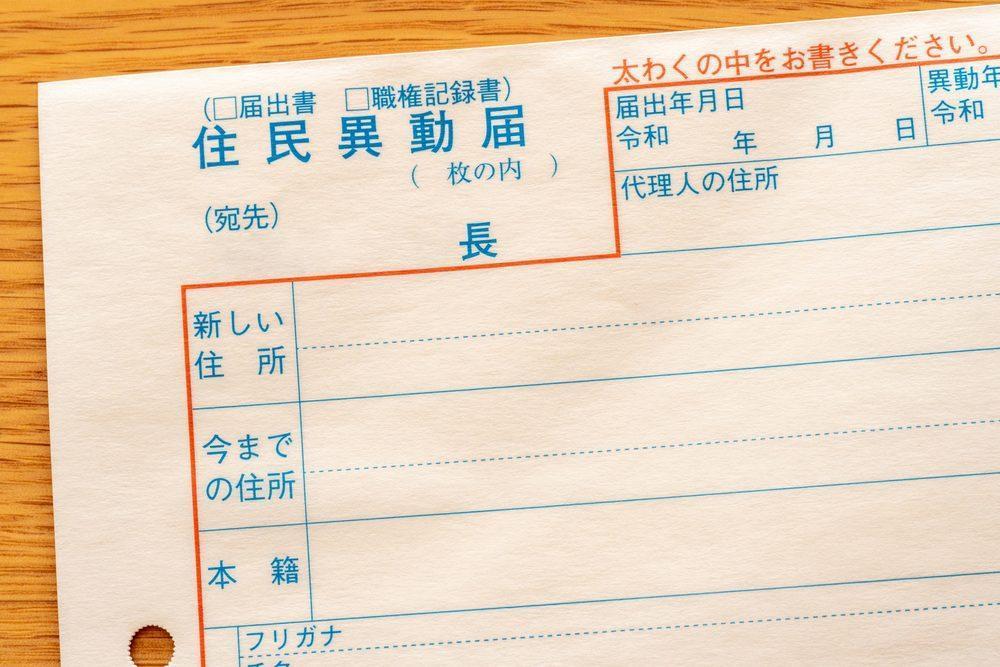 太わくの中をお書きください。
（□届出書　□職権記録書）
住民異動届
（　枚の内　）
（宛先）
長
届出年月日
令和　年　月　日
異動年
令和
代理人の住所
新しい
住　所
今まで
の住所
本　籍
フリガナ